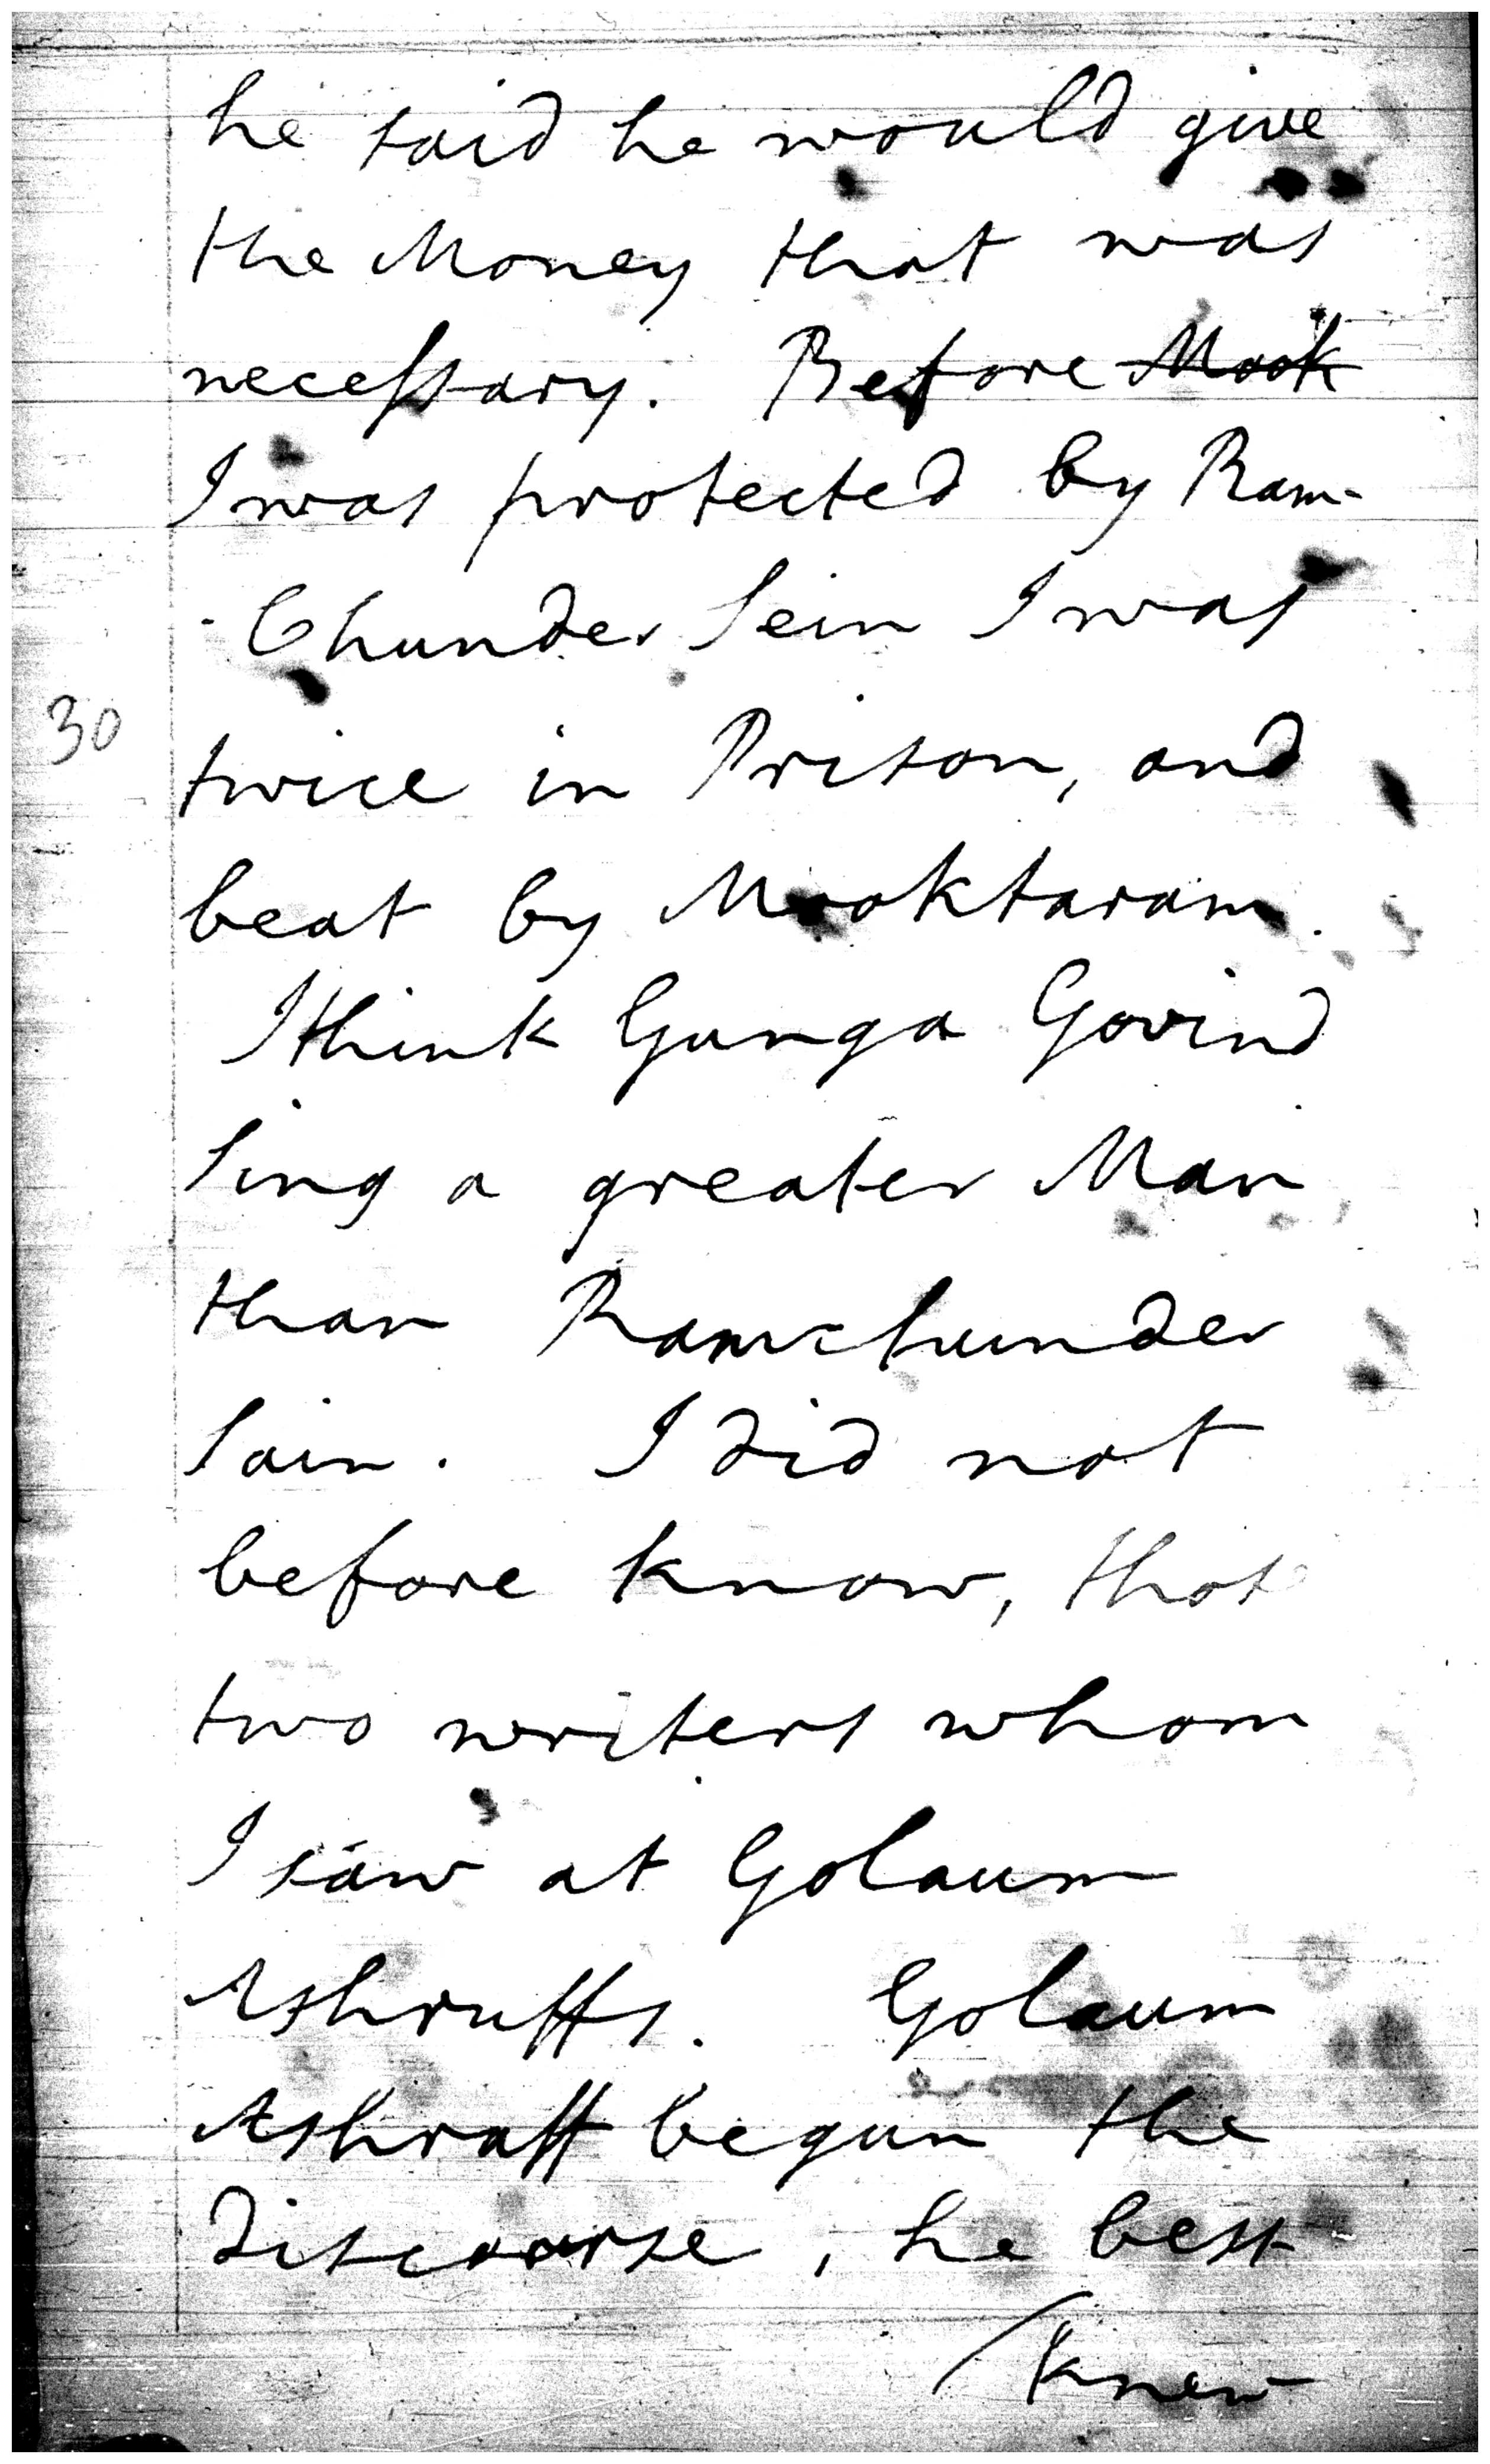 he said he would give
the Money that was
necessary. Before Mook
I was protected by Ram-
-Chunder Sein I was
30
twice in Prison, and
beat by Mooktaram.
I think Gunga Govind
Sing a greater Man
than Ramchunder
Sain. I did not
before know, that
two writers whom
I saw at Golaum
Ashruffs. Golaum
Ashraff begun the
Discourse, he best
/knew